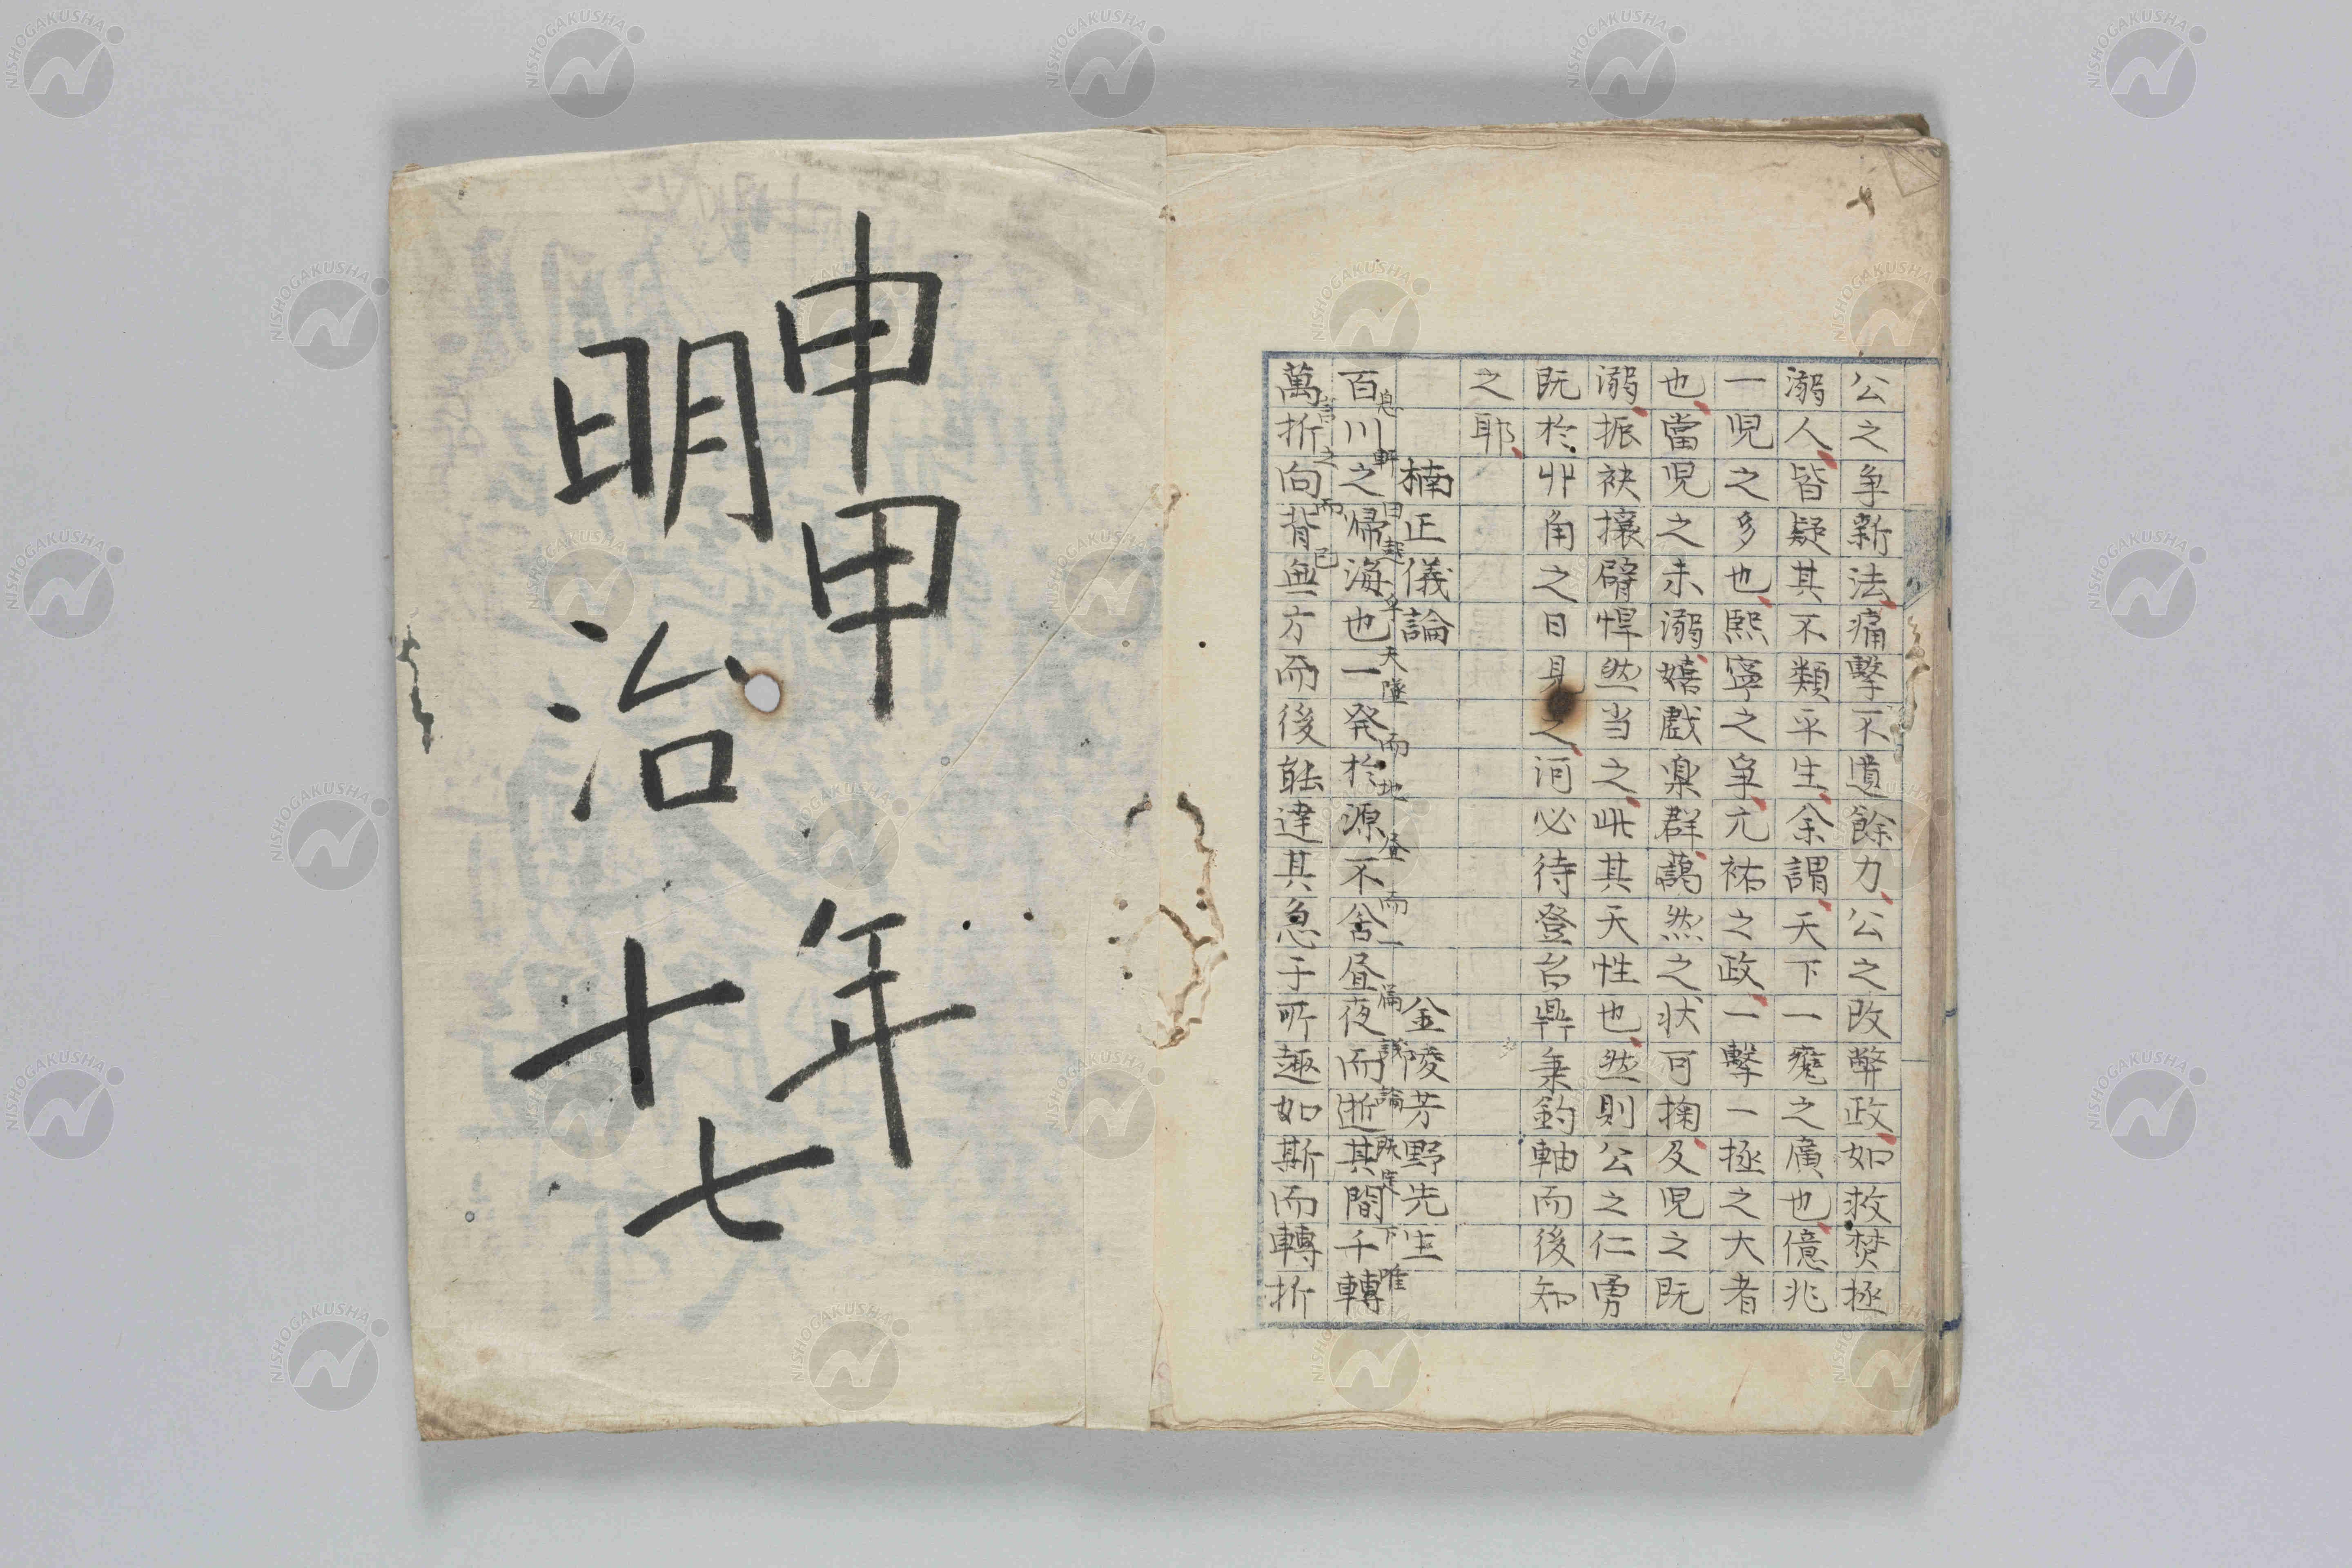 公之争新法痛撃不遺餘力公之改弊政如救焚拯
溺人皆疑其不類平生余謂天下一甕之廣也億兆
一児之多也熙寧之争元祐之政一撃一拯之大者
也當児之未溺嬉戯楽群藹然之状可掬及児之既
溺振袂攘臂悍然当之此其天性也然則公之仁勇
既於丱角之日見之何必待登台鼎秉鈞軸而後知
之耶
楠正儀論 金陵芳野先生
息軒曰起手天墜而地
昼而一篇議論既定下唯
百川之帰海也一発於源不舍昼夜而逝其間千轉
言之而已
萬折向背無方而後能達其急于所趣如斯而轉折
申申年
明治十七
NISHOGAKUSHA